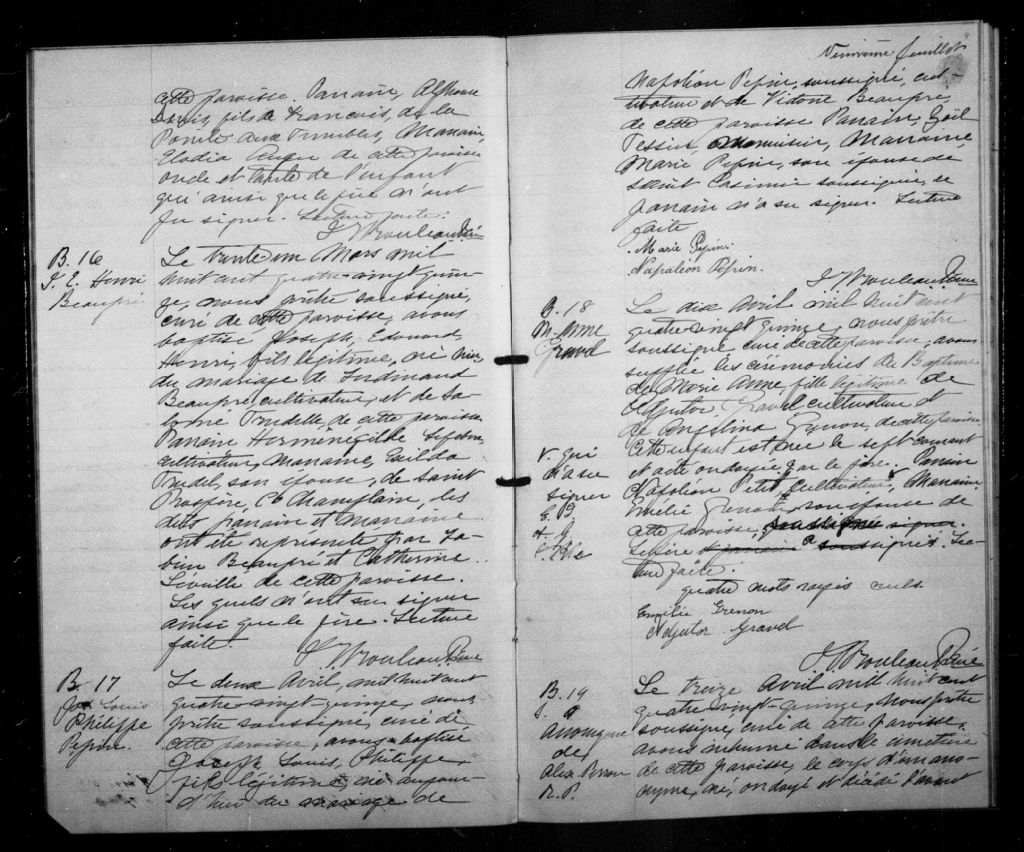 cette paroisse. Parrain, Alphonse
fils de François, de la
Pointe aux Trembles, Marraine,
Elodia Auger de cette paroisse
oncle et tante de l'enfant
qui ainsi que le père n'ont
su signer. Lecture faite.
B. 16
J. E. Henri
Beaupré
Le trente un Mars mil
huit cent quatre-vingt quin-
ze, nous prêtre soussigné,
curé de cette paroisse, avons
baptisé Joseph, Edouard,
Henri, fils légitime, né hier
du mariage de Ferdinand
Beaupré, cultivateur, et de Sa-
lomé Trudelle, de cette paroisse
Parrain Herménégilde
cultivateur, Marraine, Exilda
Trudel, son épouse, de Saint
Prospère, Co Champlain, les
dits parrain et marraine
ont été représenté par
Beaupré et Catherine
Léveillé de cette paroisse.
Les quels n'ont su signer
ainsi que le père. Lecture
faite.
B. 17
Jos. Louis
Philippe
Pepin.
Le deux Avril, mil huit cent
quatre-vingt-quinze, nous
prêtre soussigné, curé de
cette paroisse, avons baptisé
Joseph Louis, Philippe,
fils légitime, né aujour-
d'hui du mariage de
feuillet
Napoléon Pepin, soussigné, cul-
tivateur et de Victorie Beaupré,
de cette paroisse Parrain, Joël
Tessier, menuisier, Marraine,
Marie Pepin, son épouse de
Saint Casimir soussignée, le
parrain n'a su signer. Lecture
faite
Marie Pepin.
Napoléon Pépin.
B. 18
M. Anne
Gravel
Le dix Avril mil huit cent
quatre-vingt quinze, nous prêtre
soussigné curé de cette paroisse, avons
supplée les cérémonies de Baptême
de Marie Anne, fille légitime de
Adjutor Gravel, cultivateur et
de Angélina Grenon, de cette paroisse
Cette enfant est née le sept courant
et a été ondoyée par le père. Parrain
Napoléon Petit, cultivateur, Marraine
Emélie Grenon, son épouse de
cette paroisse, soussigné signer.
le père soussignés. Lec-
ture faite.
quatre mots rayés nuls
v. qui
n'a su
signer
Emilie Grenon
Adjutor Gravel
B. 19
Anonyme
de
R. P.
Le treize Avril mil huit cent
quatre vingt-quinze, nous prêtre
soussigné, curé de cette Paroisse,
avons inhumé dans le cimetière
de cette paroisse, le corps d'un ano-
nyme, né, ondoyé et décédé l'avant